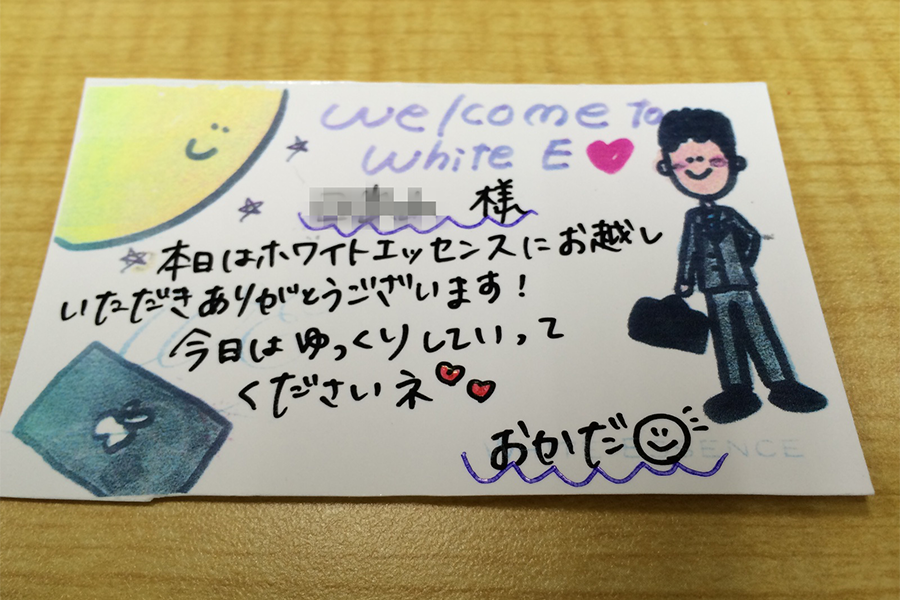 Welcome To
White E
様
本日はホワイトエッセンスにお越し
いただきありがとうございます!
今日はゆっくりしていって
くださいネ
おかだ